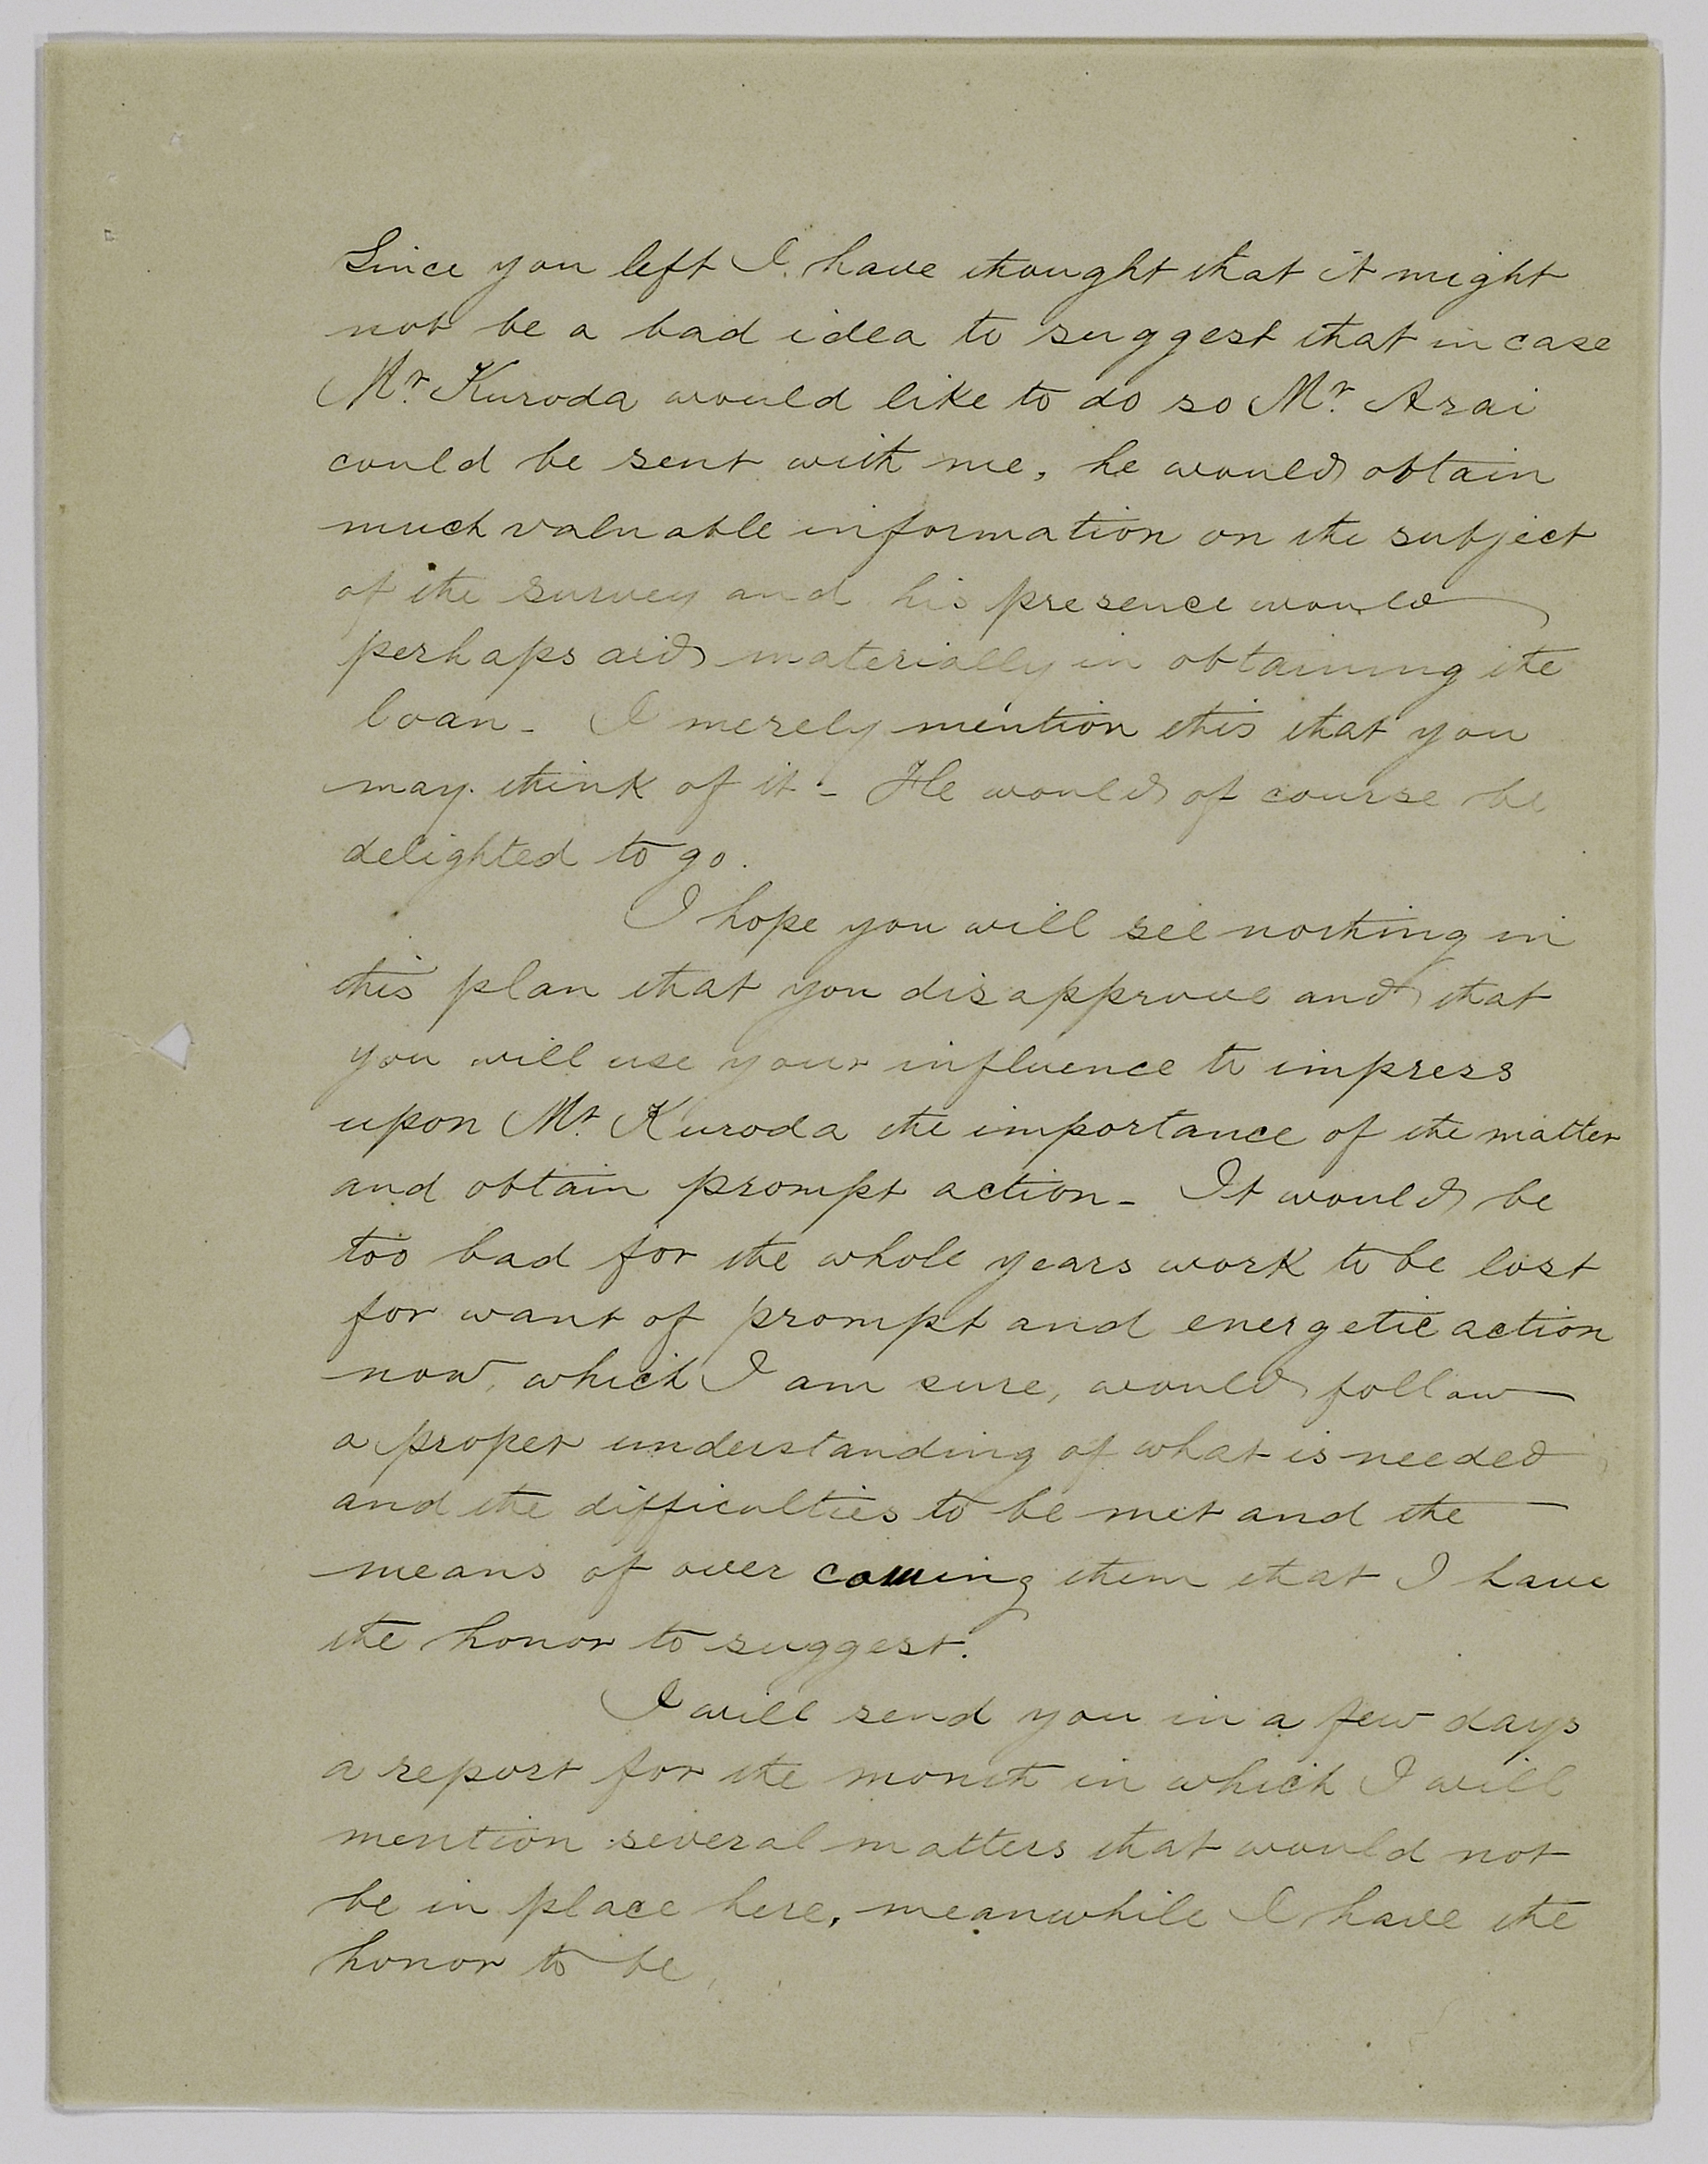 Since you left I have thought that it might
not be a bad idea to suggest that in case
Mr. Kuroda would like to do so Mr. Arai
could be sent with me, he would obtain
much valuable information on the subject
of the survey and his presence would
perhaps aid materially in obtaining the
loan - I merely mention this that you
may think of it - He would of course be
delighted to go.
I hope you will see nothing in
this plan that you disapprove and that
you will use your influence to impress
upon Mr. Kuroda the importance of the matter
and obtain prompt action - It would be
too bad for the whole years work to be lost
for want of prompt and energetic action
now, which I am sure, would follow
a proper understanding of what is needed
and the difficulties to be met and the
means of over coming them that I have
the honor to suggest.
I will send you in a few days
a report for the month in which I will
mention several matters that would not
be in place here, meanwhile I have the
honor to be,